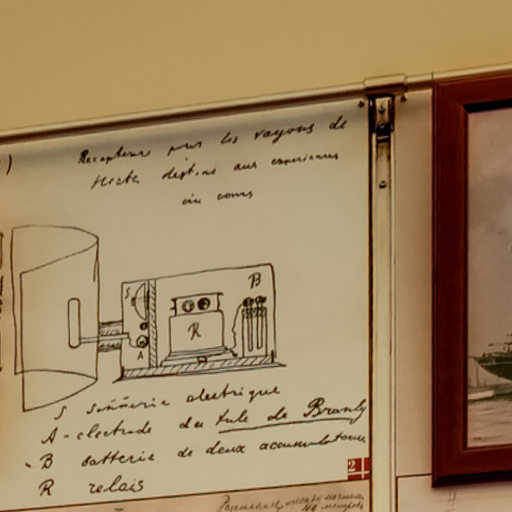 )
Recepteurs pour les rayons de
Hertz destinés aux experiences
en cours
S
A
R
B
S sonnerie electrique
A - electrode du tube de Branly
B batterie de deux accumulateurs
R relais
2